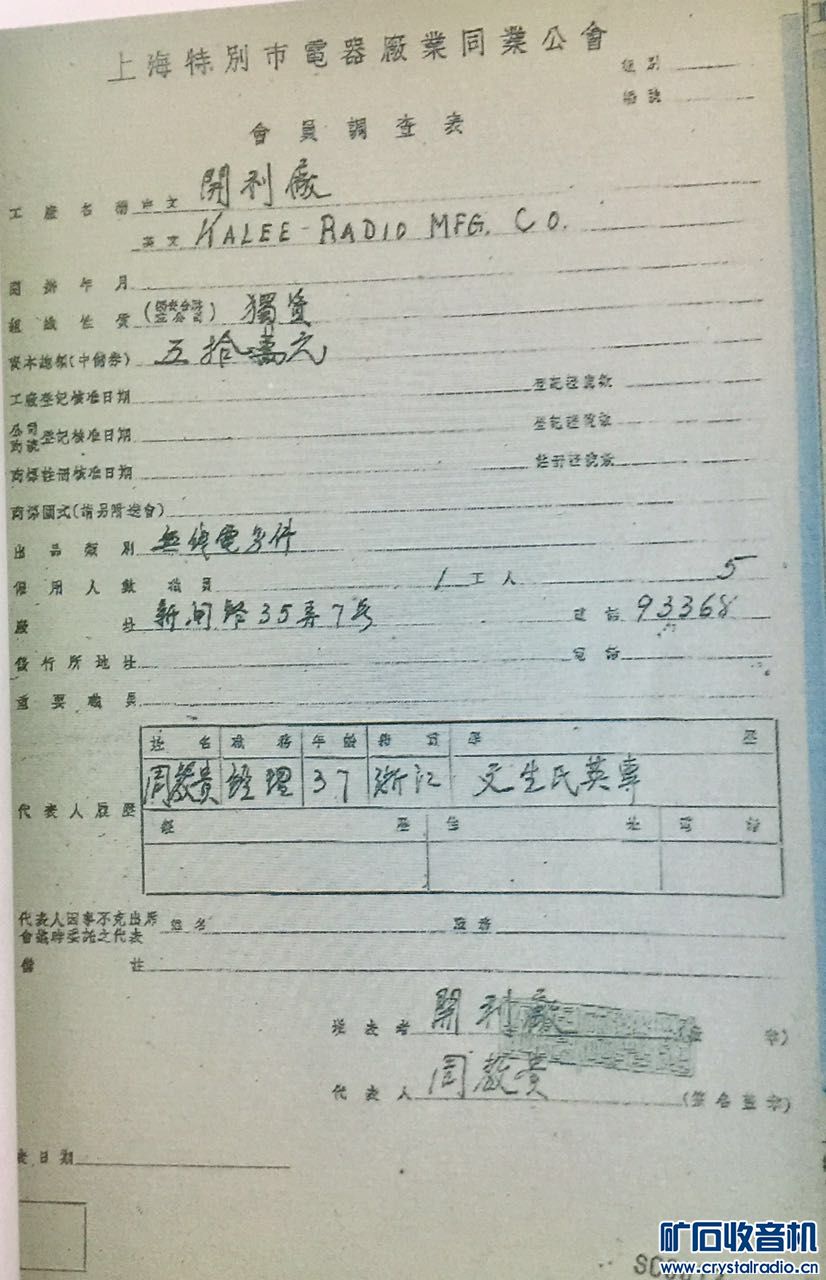 上海特別市電器廠業同業公會
組別
編號
會員調查表
工廠名稱 中文 開利廠
英文 KALEE-RADIO MFG. CO.
開辦年月
組織性質 獨資
資本總額(中儲券) 五拾萬元
工廠登記核准日期 登記証號數
公司商號登記核准日期 登記証號數
商標註冊核准日期 註冊証號數
商標圖式(請另附樣會)
出品類別 無線電另件
僱用人數 職員 1 工人 5
廠址 新閘路35弄7号 電話 93368
發行所地址 電話
重要職員
姓名 職務 年齡 籍貫 學歷
周教貴 經理 37 浙江 文生氏英專
代表人履歷
經歷 住址 電話
代表人因事不克出席
會議時委託之代表 姓名 職務
備註
填表者 開利廠 (蓋章)
代表人 周教貴 (簽名蓋章)
表日期
矿石收音机
www.crystalradio.cn